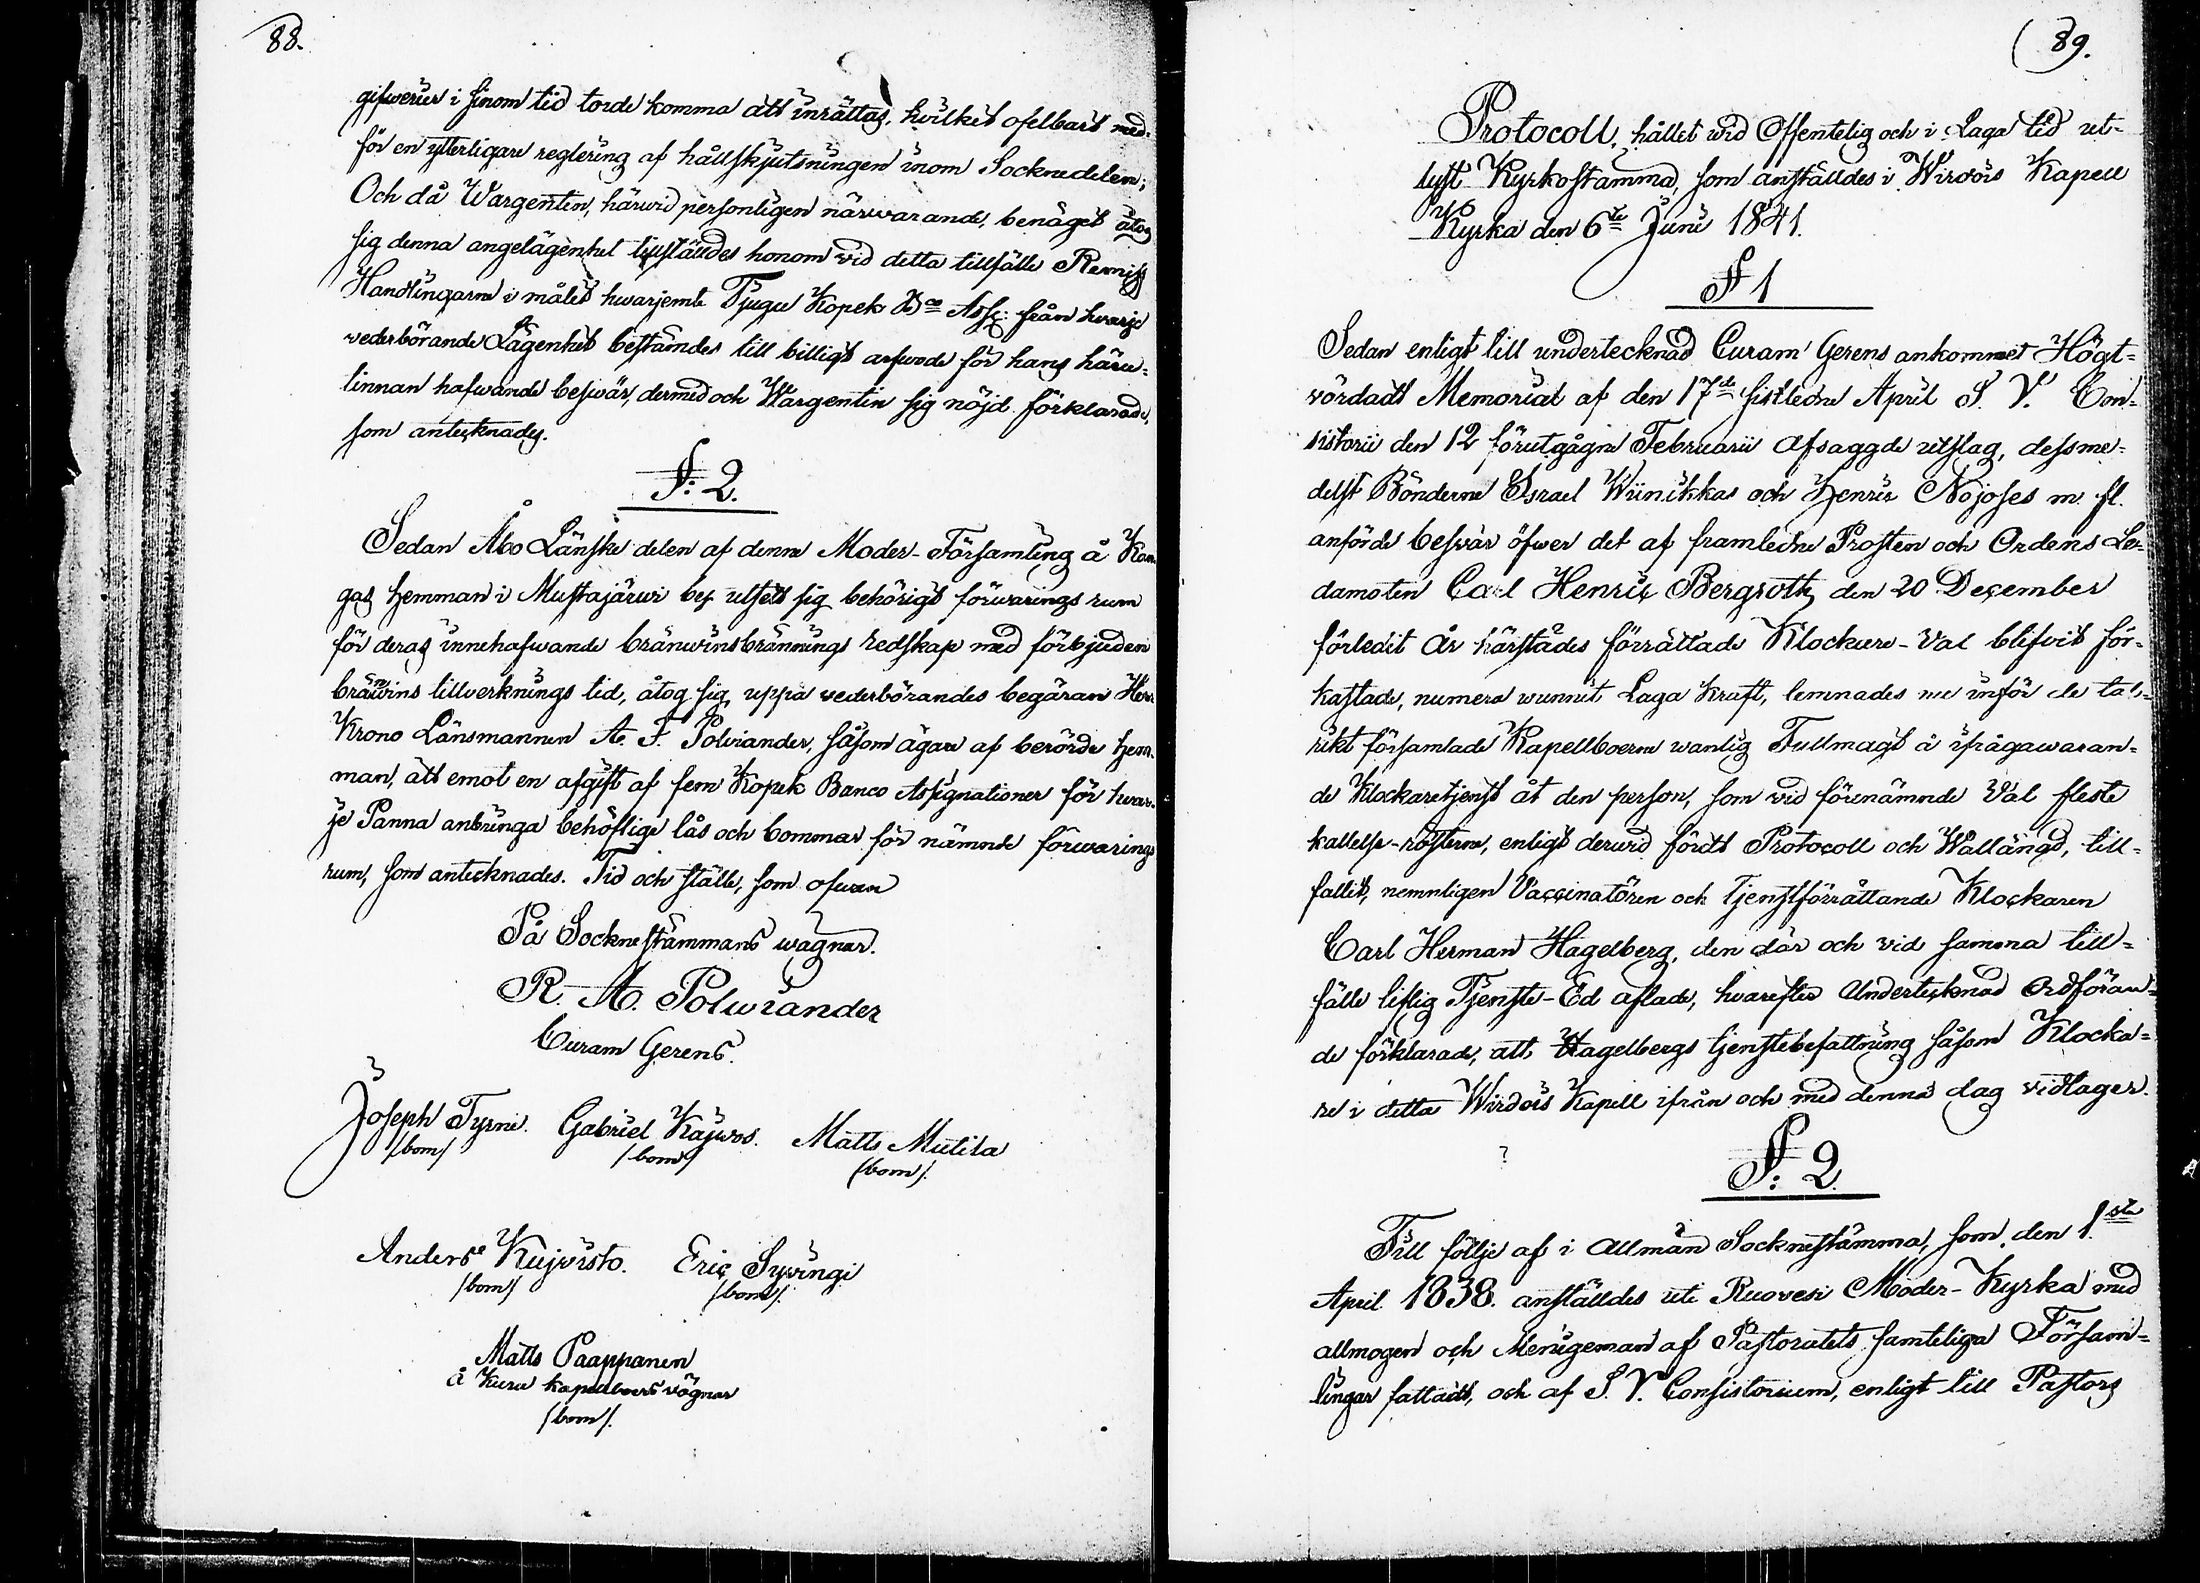 88.
gifwerier i sinom tid torde komma att inrättas, hvilket ofelbart med-
för en ytterligare reglering af hållskjutsningen inom Socknedelen;
Och då Wargentin, härwid personligen närwarande, benäget åtog
sig denna angelägenhet tillställdes honom vid detta tillfälle Remiss
Handlingarne i målet hwarjemte Tjugu Kopek Bco Assg: från hvarje
vederbörande Lägenhet bestämdes till billigt arfwode för hans häru-
tinnan hafwande beswär, dermed och Wargentin sig nöjd förklarade,
som antecknades.
§: 2.
Sedan Åbo Länske delen af denne Moder-Församling å Kan-
gas hemman i Mustajärwi by utsett sig behörigt förwarings rum
för deras innehafwande bränwinsbrännings redskap med förbjuden
bränwins tillverknings tid, åtog sig, uppå vederbörandes begäran Herr
Krono Länsmannen A. F. Polviander, såsom ägare af berörde hem-
man, att emot en afgift af fem Kopek Banco Assignationer för hvar-
je Panna anbringa behöflige lås och bommar för nämnde förwarings
rum, som antecknades. Tid och ställe, som ofwan
På Socknestämmans wägnar.
R. A. Polwiander
Curam Gerens.
Joseph Tyrni. Gabriel Käjwos. Matts Mutila
/bom/ /bom/ /bom/.
Anders Kujvisto. Eric Sywingi
/bom/ /bom/.
Matts Paappanen
å Kuru kapellboers vägnar
/bom/.
89.
Protocoll, hållet wid Offentelig och i Laga tid ut-
lyst Kyrkostämma, som anställdes i Wirdois Kapell
Kyrka den 6te Junii 1841.
§ 1
Sedan enligt till undertecknad Curam Gerens ankommet Högt-
vördadt Memorial af den 17de sistledne April S. V. Con-
sistorii den 12 förutgågne Februarii afsaggde utslag, dessme-
delst Bönderne Israel Wiinikkas och Henric Nojoses m. fl.
anförde beswär öfwer det af framledne Prosten och Ordens Le-
damoten Carl Henric Bergroth, den 20 December
förledit År härstädes förrättade Klockare-Val blifvit för-
kastade, numera wunnit Laga Kraft, lemnades nu inför de tal-
rikt församlade Kapellboerne wanlig Fullmagt å ifrågawaran-
de Klockaretjenst åt den person, som vid förenämnde Val fleste
kallelse-rösterne, enligt derwid fördt Protocoll och Wallängd, till-
fallit, nemnligen Vaccinatören och Tjenstförrättande Klockaren
Carl Herman Hagelberg, den där och vid samma till-
fälle liflig Tjenste-Ed aflade, hvarefter Undertecknad Ordföran-
de förklarade, att Hagelbergs tjenstebefattning såsom Klocka-
re i detta Wirdois Kapell ifrån och med denna dag vidtager.
§: 2.
Till följe af i Allmän Socknestämma, som den 1sta
April 1838. anställdes uti Ruovesi Moder-Kyrka med
allmogen och Menigeman af Pastoratets samteliga Försam-
lingar fattadt, och af S. V. Consistorium, enligt till Pastors